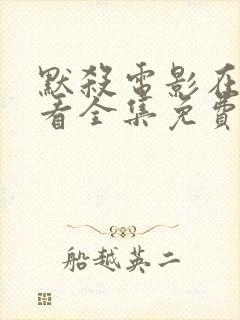 默殺電影在
看全集免費
船越英二